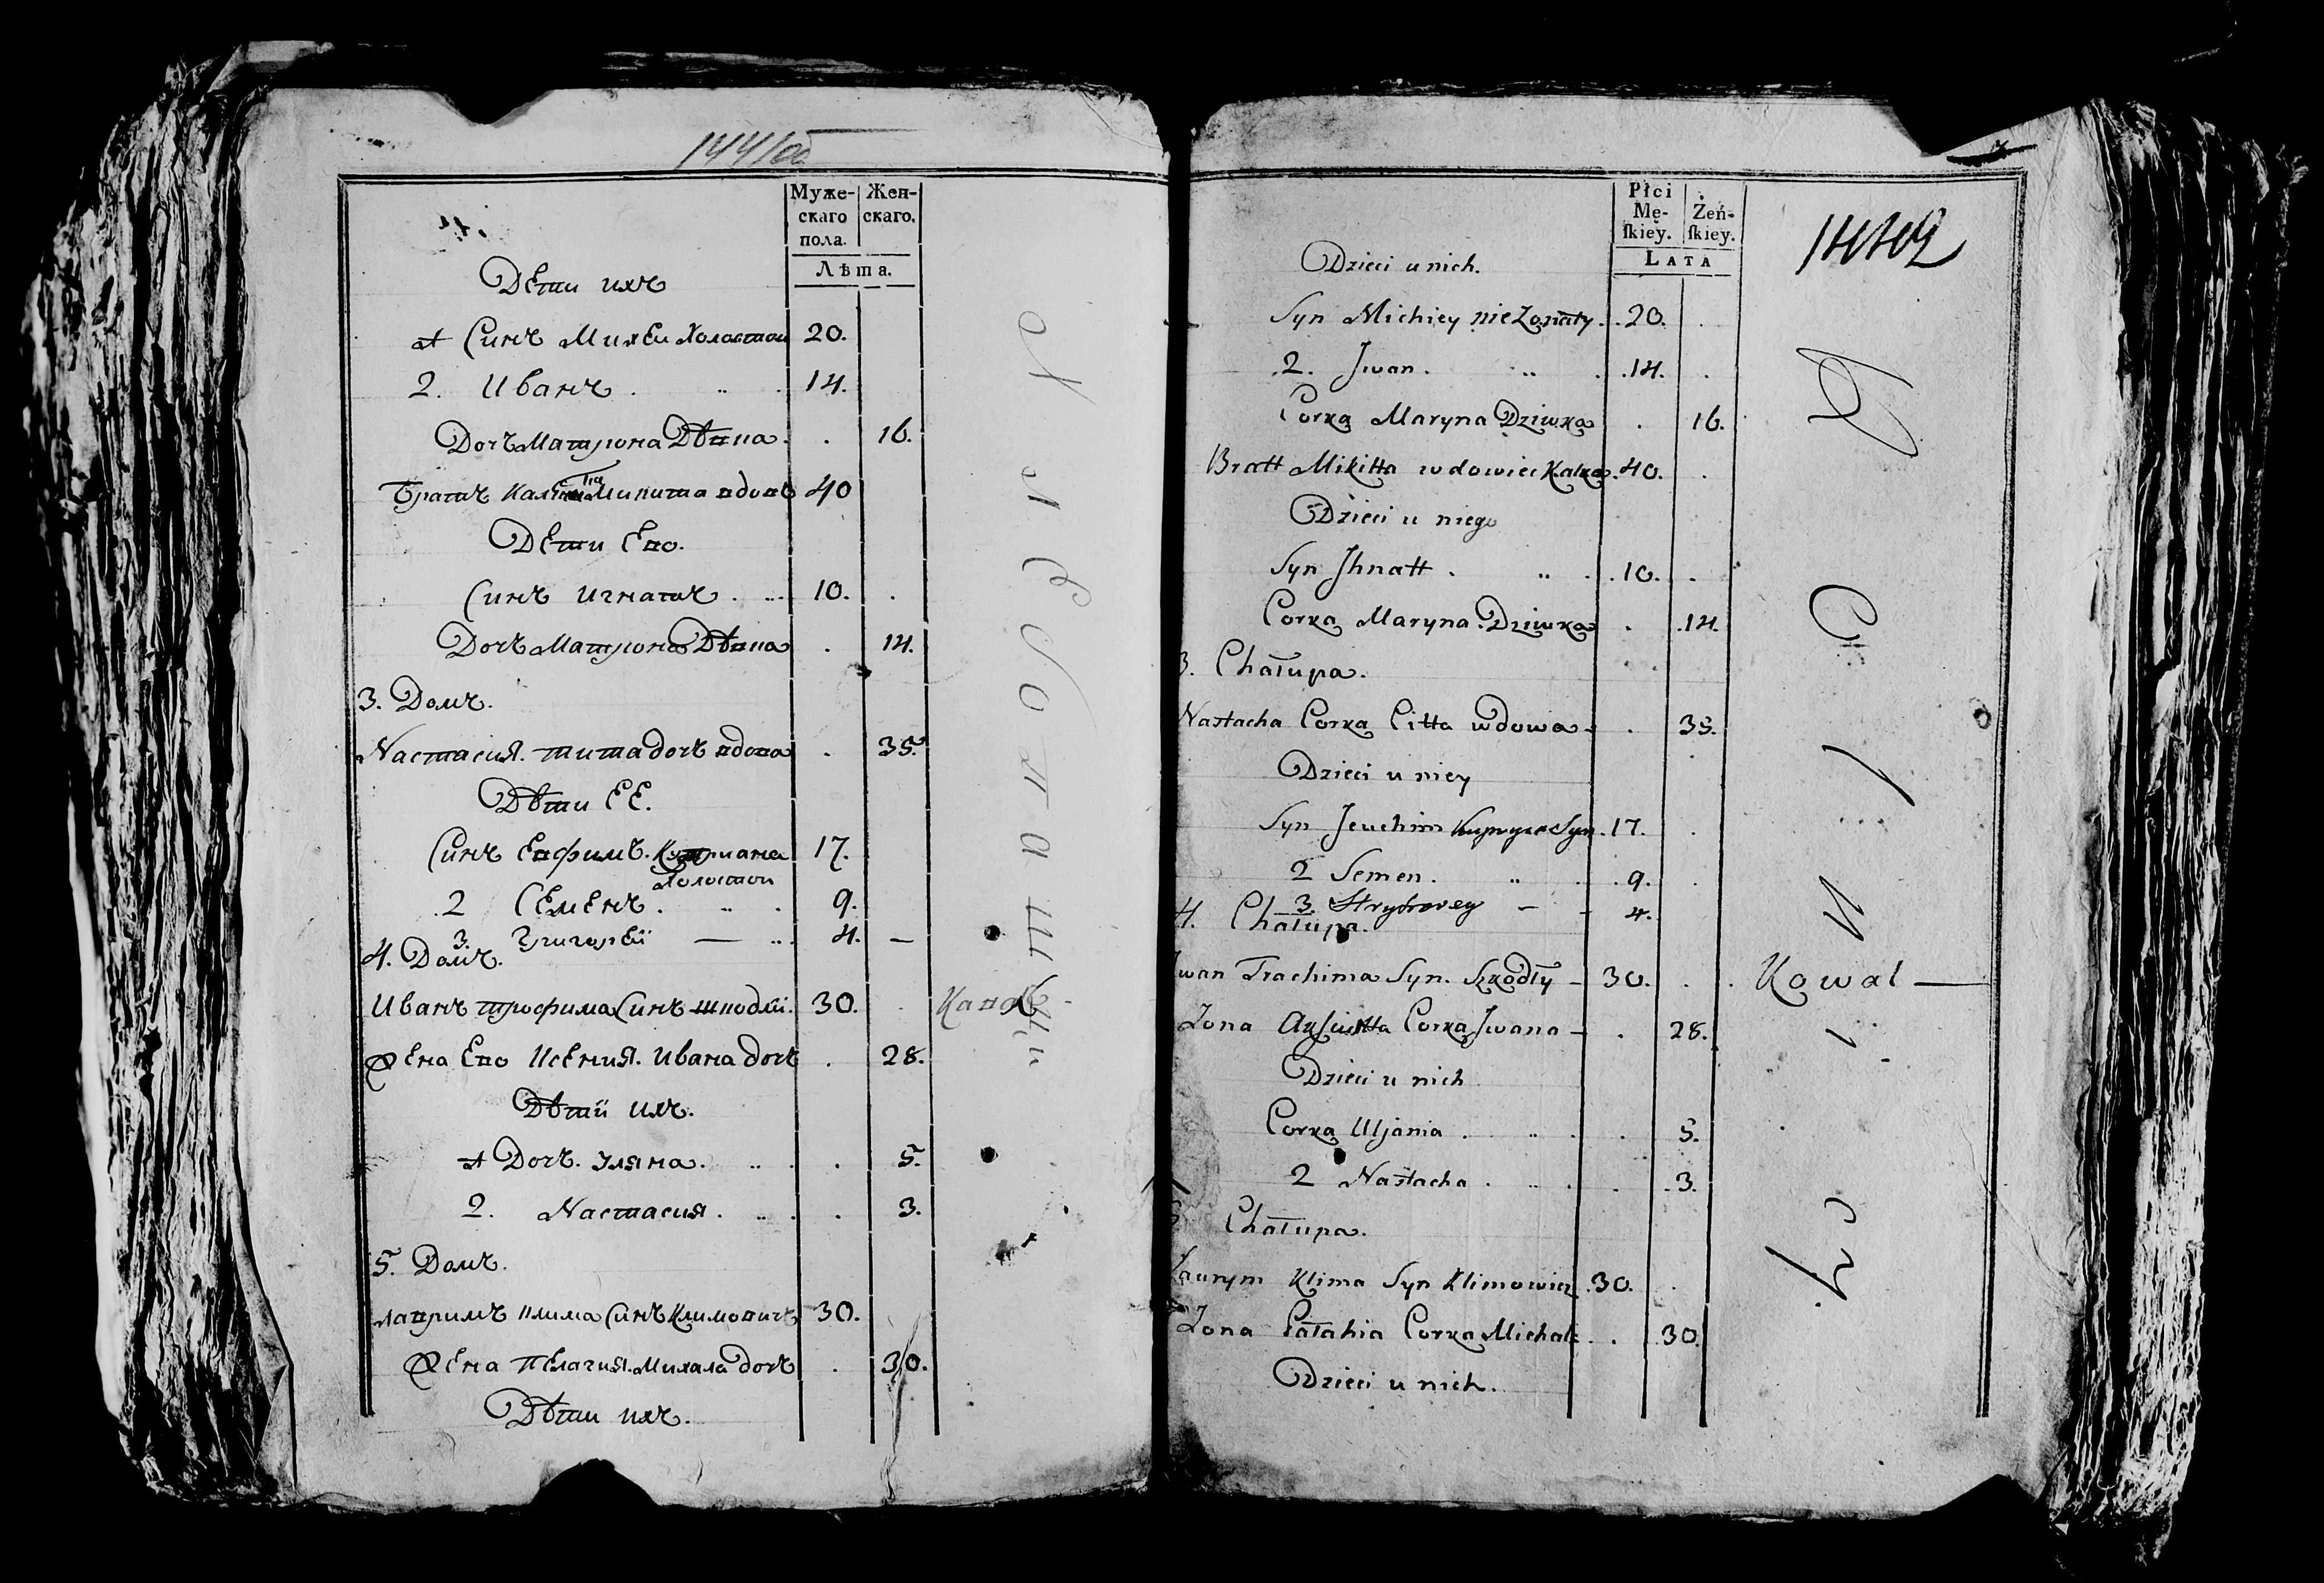 144/об
Муже-
скаго
пола.
Жен-
скаго.
Лѣта.
Дети ихъ
1 Синъ Михеи Холостои 20.
2. Иванъ . .. . 14.
Дочъ Матрона Дѣвка . . 16.
Братъ Калка Микита вдовъ 40
Дети Ево.
Синъ Игнатъ . .. 10. .
Дочъ Матрона Дѣвка . 14.
3. Домъ.
Настасия. тита дочъ вдова . 35.
Дѣти ЕЕ.
Синъ Евфимъ. Куприана 17.
Холостои
2 СЕмЕнъ . .. . 9.
3. Григорѣй — .. 4. —
4. Домъ.
Иванъ трофима Синъ шкодлй. 30. . Кавал
Жена Ево Ксения. Ивана дочъ . 28.
Дѣтй ихъ.
1 Дочъ. Уляна. .. . . 5.
2. Настасия . .. . . 3.
5. Домъ.
лавримъ клима Синъ Климовичъ 30.
Жена Пелагия. Михала дочъ . 30.
Дѣти ихъ.
Płci
Mę-
ſkiey.
Żeń-
ſkiey.
LATA
Dzieci u nich.
Syn Michiey nieżonaty . .20. .
2. Jwan . .. . .14. .
Corka Maryna Dziwka . 16.
Bratt Mikitta wdowiec Kalka .40. .
Dzieci u niego
Syn Jhnatt . .. . .10. .
Corka Maryna. Dziwka . .14.
3. Chałupa.
Nastacha Corka Citta wdowa - . 35.
Dzieci u niey
Syn Jeuchim Kupryia Syn .17. .
2 Semen. .. . .9. .
3. Hryhorey — - 4.
4. Chałupa.
Jwan Trachima Syn. Szkodły - 30. . . Kowal —
Zona Axiutta Corka Jwana - . 28.
Dzieci u nich
Corka Uljania . .. . . 5.
2 Nastacha . .. . . .3.
Chałupa.
Łaurym Klima Syn Klimowicz .30. .
Zona Pałahia Corka Michała . . 30.
Dzieci u nich.